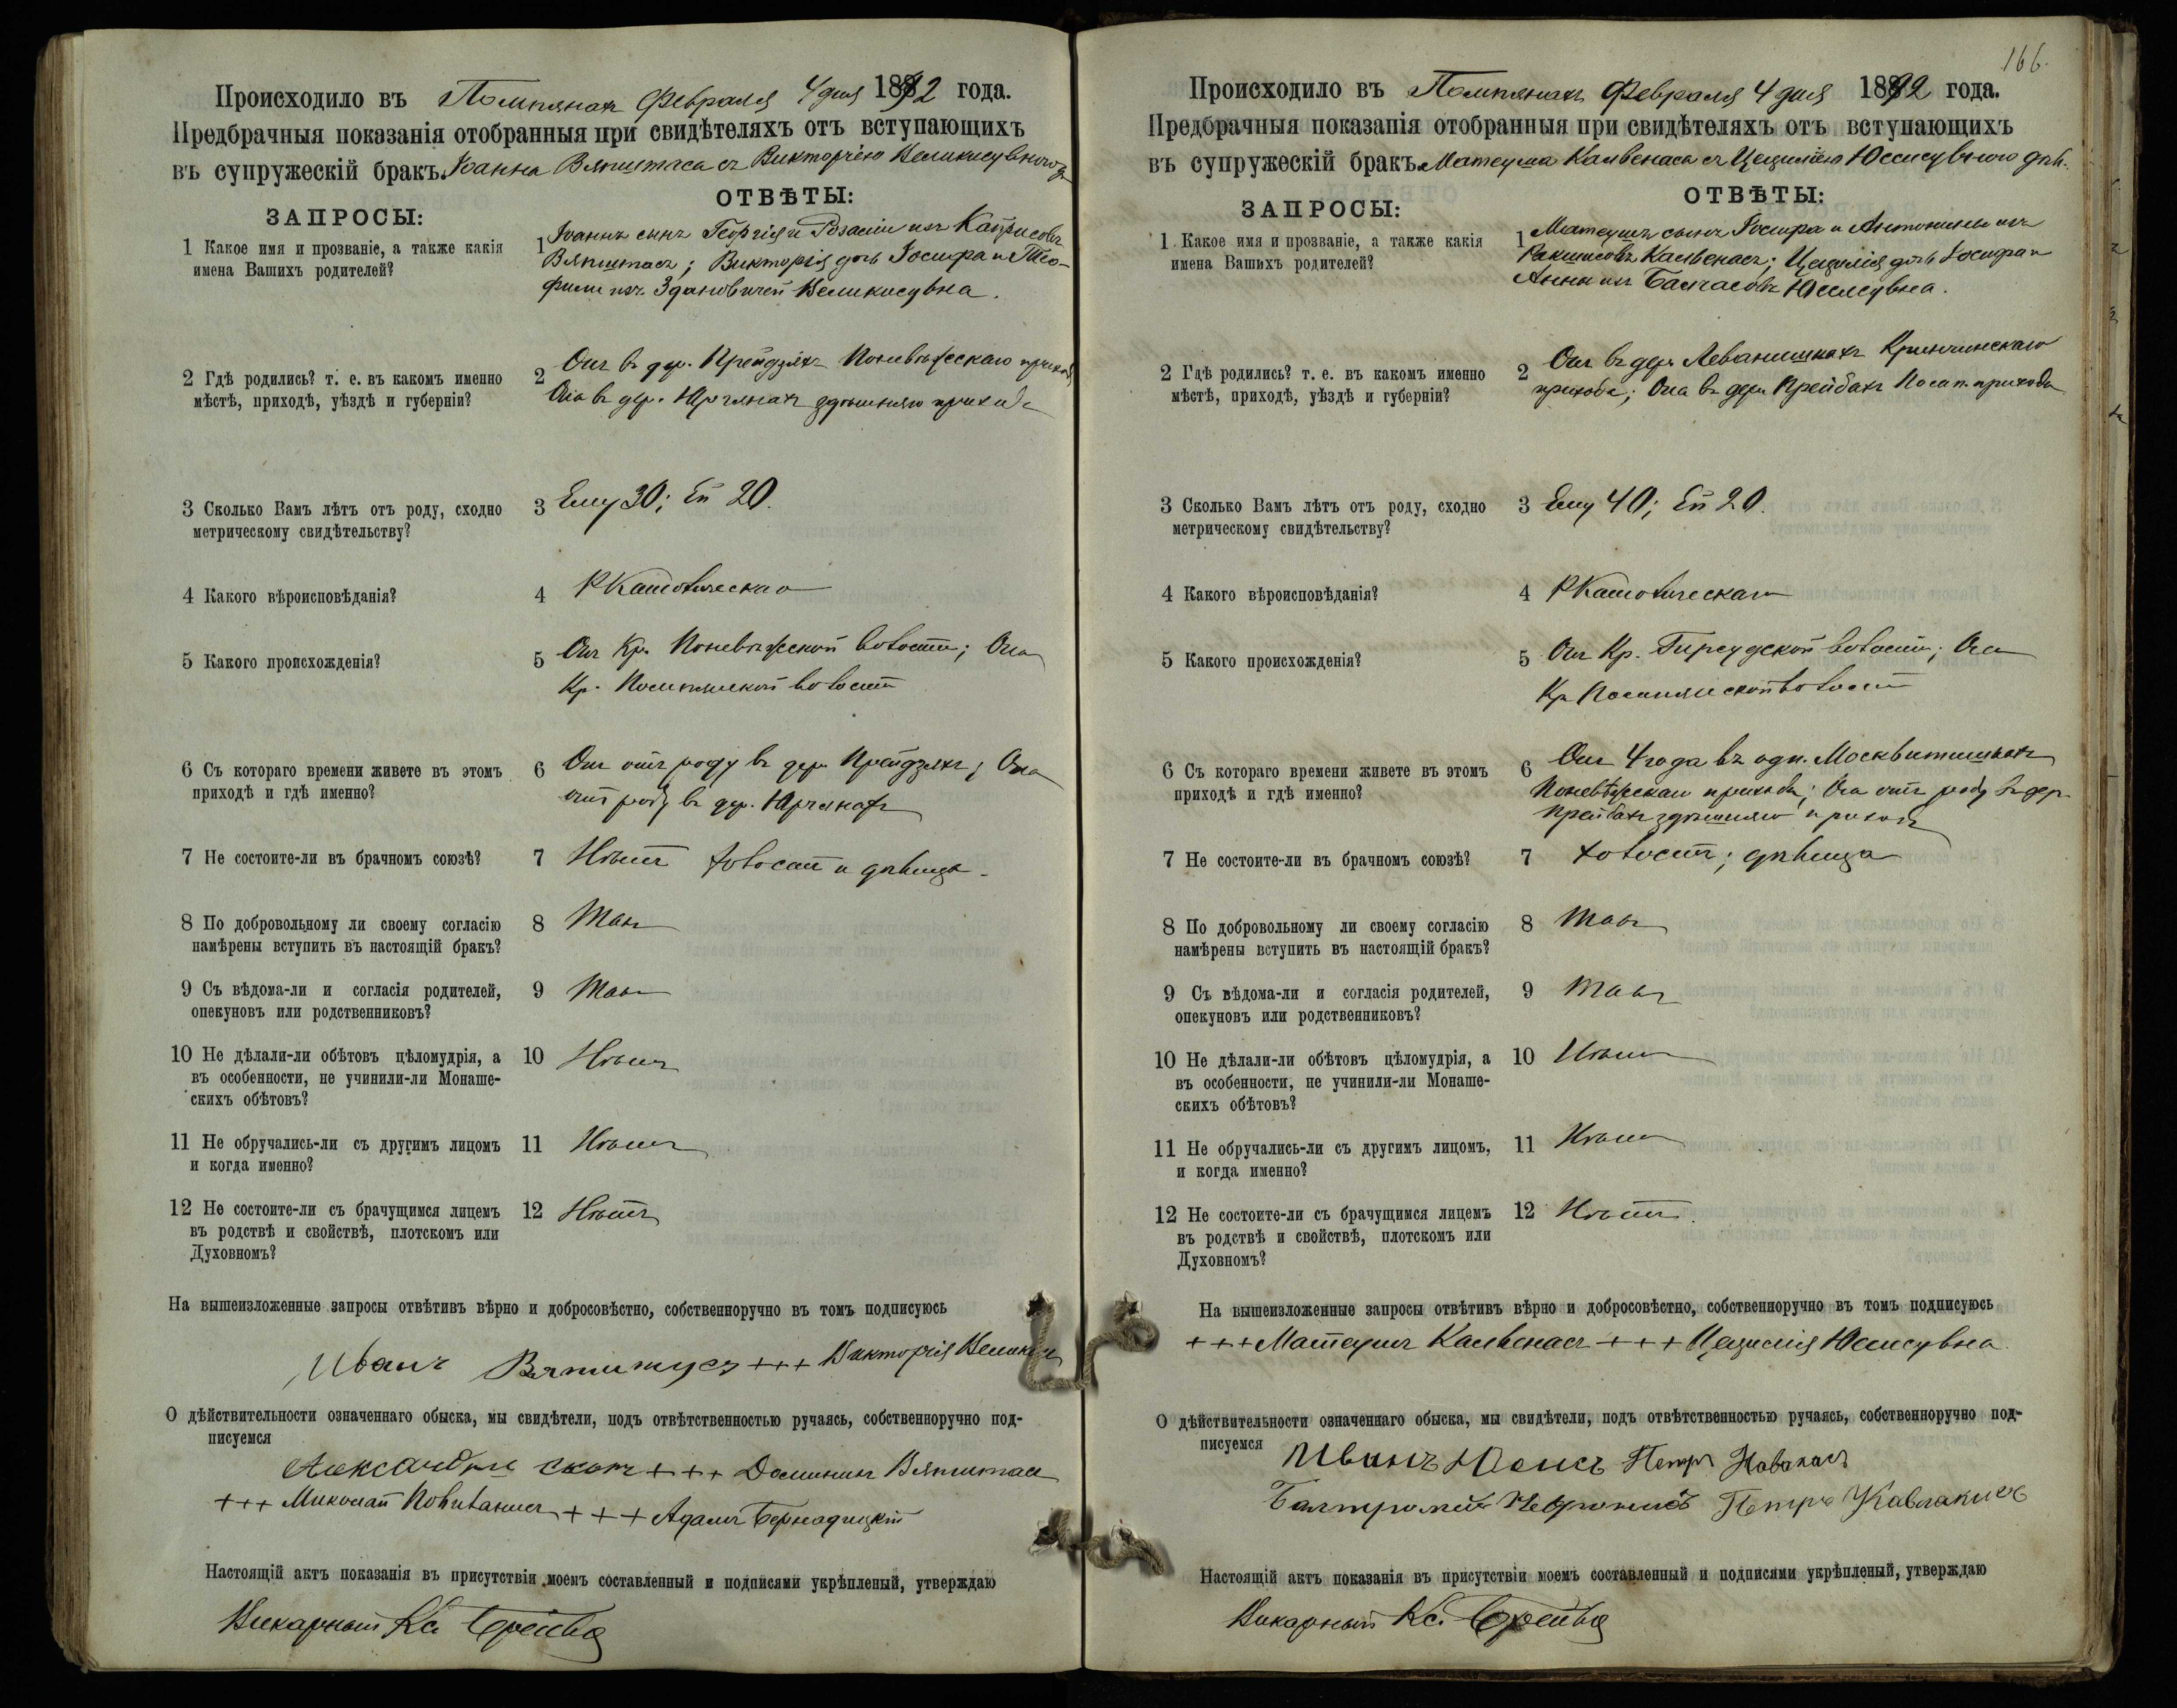 Происходило въ Помпянахъ Февраля 4 дня 1892 года.
Предбрачныя показанія отобранныя при свидѣтеляхъ отъ вступающихъ
въ супружескій бракъ. Іоанна Вяпштаса съ Викторіею Великисувною
ЗАПРОСЫ:
ОТВѢТЫ:
1 Какое имя и прозваніе, а также какія
имена Вашихъ родителей?
1 Іоаннъ сынъ Георгія и Розаліи изъ
Вяпштасъ; Викторія дочь Іосифа и Тео-
фили изъ Здановичей Великисувна.
2 Гдѣ родились? т. е. въ какомъ именно
мѣстѣ, приходѣ, уѣздѣ и губерніи?
2 Онъ въ дер. Поневѣжскаго
Она въ дер. Юрчянахъ здѣшняго прихода
3 Сколько Вамъ лѣтъ отъ роду, сходно
метрическому свидѣтельству?
3 Ему 30; Ей 20.
4 Какого вѣроисповѣданія?
4 РКатолическаго
5 Какого происхожденія?
5 Онъ Кр. Поневѣжской волости; Она
Кр. Помпянской волости
6 Съ котораго времени живете въ этомъ
приходѣ и гдѣ именно?
6 Онъ отъ роду въ дер. Она
отъ роду въ дер. Юрчянахъ
7 Не состоите-ли въ брачномъ союзѣ?
7 Нѣтъ холостъ и дѣвица.
8 По добровольному ли своему согласію
намѣрены вступить въ настоящій бракъ?
8 Такъ
9 Съ вѣдома-ли и согласія родителей,
опекуновъ или родственниковъ?
9 Такъ
10 Не дѣлали-ли обѣтовъ цѣломудрія, а
въ особенности, не учинили-ли Монаше-
скихъ обѣтовъ?
10 Нѣтъ
11 Не обручались-ли съ другимъ лицомъ
и когда именно?
11 Нѣтъ
12 Не состоите-ли съ брачущимся лицемъ
въ родствѣ и свойствѣ, плотскомъ или
Духовномъ?
12 Нѣтъ
На вышеизложенные запросы отвѣтивъ вѣрно и добросовѣстно, собственноручно въ томъ подписуюсь
Иванъ +++ Викторія
О дѣйствительности означеннаго обыска, мы свидѣтели, подъ отвѣтственностью ручаясь, собственноручно под-
писуемся
+++ Доминикъ Вяпштасъ
+++ Миколай +++ Адамъ Бернадицкій
Настоящій актъ показанія въ присутствіи моемъ составленный и подписями укрѣпленый, утверждаю
Викарный Кс.
166.
Происходило въ Помпянахъ Февраля 4 дня 1892 года.
Предбрачныя показанія отобранныя при свидѣтеляхъ отъ вступающихъ
въ супружескій бракъ. Матеуша Калвенаса съ Цециліею Юссисувною дѣв.
ЗАПРОСЫ:
ОТВѢТЫ:
1 Какое имя и прозваніе, а также какія
имена Вашихъ родителей?
1 Матеушъ сынъ Іосифа и Антонины изъ
Калвенасъ; Цецилія дочь Іосифа и
Анны изъ Юссисувна.
2 Гдѣ родились? т. е. въ какомъ именно
мѣстѣ, приходѣ, уѣздѣ и губерніи?
2 Онъ въ дер. Леванишкахъ Кринчинскаго
прихода; Она въ дер. Прейбахъ прихода
3 Сколько Вамъ лѣтъ отъ роду, сходно
метрическому свидѣтельству?
3 Ему 40; Ей 20.
4 Какого вѣроисповѣданія?
4 РКатолическаго
5 Какого происхожденія?
5 Онъ Кр. волости; Она
Кр Помпянской волости
6 Съ котораго времени живете въ этомъ
приходѣ и гдѣ именно?
6 Онъ 4 года въ одн. Москвитишкахъ
Поневѣжскаго прихода; Она отъ роду въ дер.
Прейбахъ здѣшняго прихода
7 Не состоите-ли въ брачномъ союзѣ?
7 холостъ; дѣвица
8 По добровольному ли своему согласію
намѣрены вступить въ настоящій бракъ?
8 Такъ
9 Съ вѣдома-ли и согласія родителей,
опекуновъ или родственниковъ?
9 Такъ
10 Не дѣлали-ли обѣтовъ цѣломудрія, а
въ особенности, не учинили-ли Монаше-
скихъ обѣтовъ?
10 Нѣтъ
11 Не обручались-ли съ другимъ лицомъ,
и когда именно?
11 Нѣтъ
12 Не состоите-ли съ брачущимся лицемъ
въ родствѣ и свойствѣ, плотскомъ или
Духовномъ?
12 Нѣтъ.
На вышеизложенные запросы отвѣтивъ вѣрно и добросовѣстно, собственноручно въ томъ подписуюсь
+++ Матеушъ Калвенасъ +++ Цецилія Юссисувна.
О дѣйствительности означеннаго обыска, мы свидѣтели, подъ отвѣтственностью ручаясь, собственноручно под-
писуемся
Иванъ Петръ
Петръ
Настоящій актъ показанія въ присутствіи моемъ составленный и подписями укрѣпленый, утверждаю
Викарный Кс.